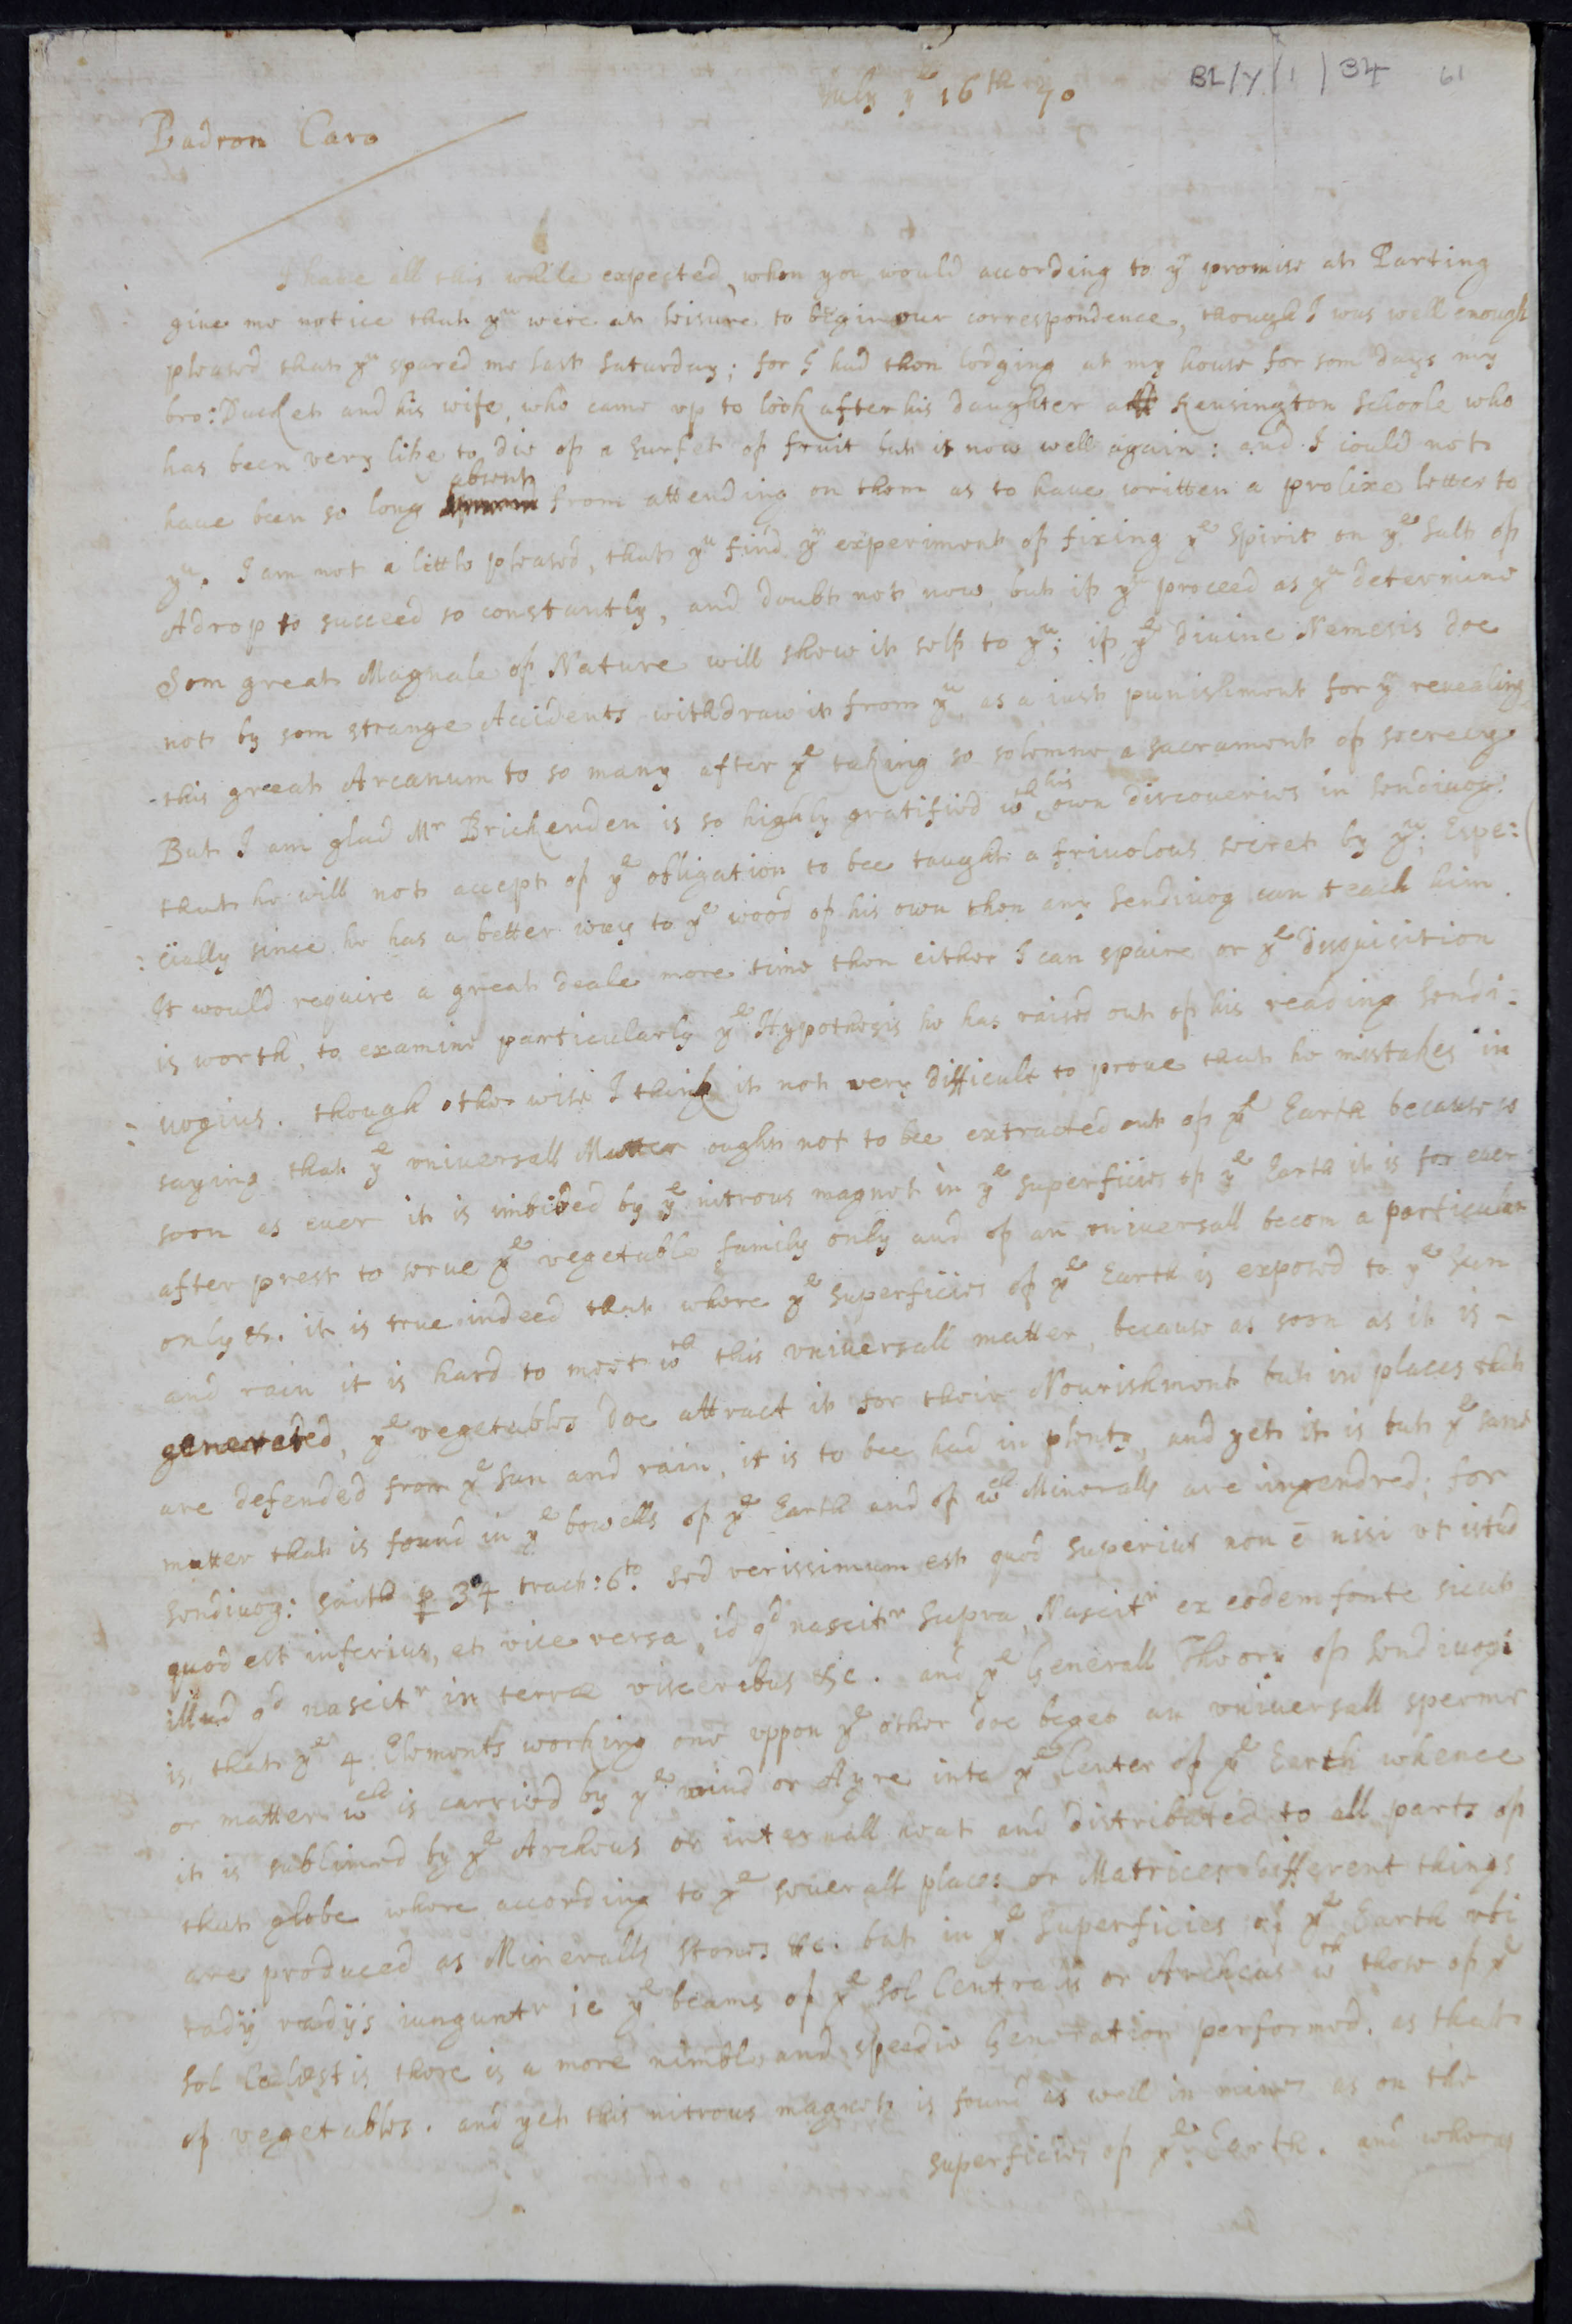 BL/Y/1/34 61
July yᵉ 16th 70
Padron Caro
I haue all this while expected, when you would according to yr promise at Parting
giue me notice that yu were at leisure to begin our correspondence, though I was well enough
pleased that yu spared me last Saturday; for I had then lodging at my house for som days my
bro: Ducket and his wife, who came vp to look after his daughter att Kensington Schoole who
has been very like to die of a surfet of fruit but is now well again: and I could not
haue been so long absent from attending on them as to haue written a prolixe letter to
yu. I am not a little pleased, that yu find yr experiment of fixing ye Spirit on ye Salt of
Adrop to succeed so constantly, and doubt not now, but if yu proceed as yu determine
Som great Magnale of Nature will shew it self to yu; if ye divine Nemesis doe
not by som strange Accidents withdraw it from yu as a iust punishment for yr reuealing
this great Arcanum to so many after ye taking so solemne a sacrament of secrecy
But I am glad Mr Brickenden is so highly gratified wth his own discoueries in Sendiuog:
that he will not accept of ye obligation to bee taught a friuolous secret by yu; Espe:
:cially since he has a better way to ye wood of his own then any Sendiuog can teach him.
It would require a great deale more time then either I can spaire or ye disquisition
is worth, to examine particularly ye Hypothesis he has raised out of his reading Sendi:
:uogius. though otherwise I think it not very difficult to proue that he misstakes in
saying that ye vniuersall Matter ought not to bee extracted out of ye Earth because so
soon as euer it is imbibed by ye nitrous magnet in ye superficies of ye Earth it is for euer
after prest to serue ye vegetable family only and of an vniuersall becom a particular
only &c. it is true indeed that where ye superficies of ye Earth is exposed to ye Sun
and rain it is hard to meet wth this vniuersall matter, because as soon as it is –
generated, ye vegetables doe attract it for their Nourishment but in places that
are defended from ye Sun and rain, it is to bee had in plenty, and yet it is but ye same
matter that is found in ye bowells of ye Earth and of wch Mineralls are ingendred; for
Sendiuog: saith p 34 tract: 6to. Sed verissimum est quod superius non ē nisi vt istud
quod est inferius, et vice versa, id qd nascitr supra, Nascitr ex eodem fonte sicut
illud qd nascitr in terræ visceribus &c. and ye Generall Theory of Sendiuogi
is, that ye 4 Elements working one vppon ye other doe beget an vniuersall sperme
or matter wch is carried by ye wind or Ayre into ye Center of ye Earth whence
it is sublimed by ye Archeus or internall heat and distributed to all parts of
that globe where according to ye seuerall places or Matrices different things
are produced as Mineralls stones &c. but in ye Superficies of ye Earth vbi
radij radijs iunguntr ie ye beams of ye Sol Centralis or Archeus wth those of ye
Sol Cœlestis there is a more nimble and speedie Generation performed, as that
of vegetables. and yet this nitrous magnet is found as well in mines as on the
superficies of ye Earth. and wheras